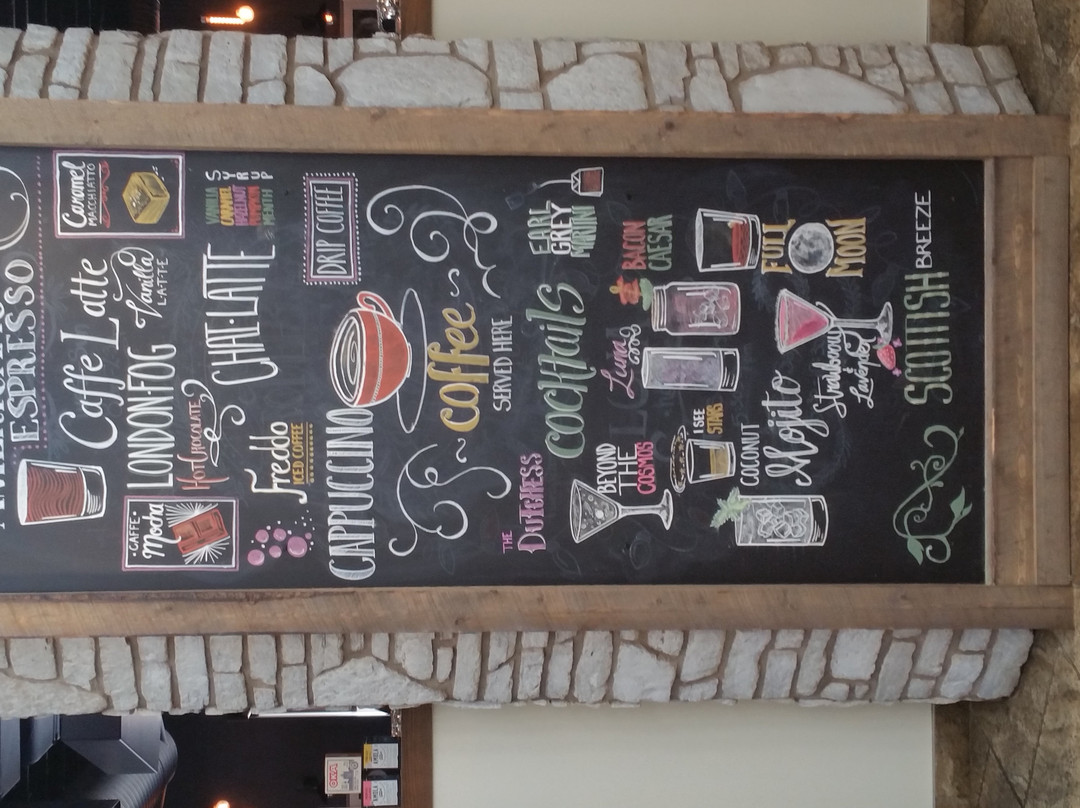 ESPRESSO
Caffe Latte
Caramel
MACCHIATTO
CAFFE
Mocha
LONDON FOG
Vanilla
LATTE
HOT CHOCOLATE
CHAI·LATTE
VANILLA
CARAMEL
HAZELNUT
PUMPKIN
SYRUP
Freddo
ICED COFFEE
DRIP COFFEE
CAPPUCCINO
coffee
SERVED HERE
THE
DUTCHESS
cocktails
EARL
GREY
MARTINI
BEYOND
THE
COSMOS
Luna
BACON
CAESAR
I SEE
STARS
FULL
MOON
COCONUT
Mojito
Strawberry
&
Lavender
SCOTTISH BREEZE